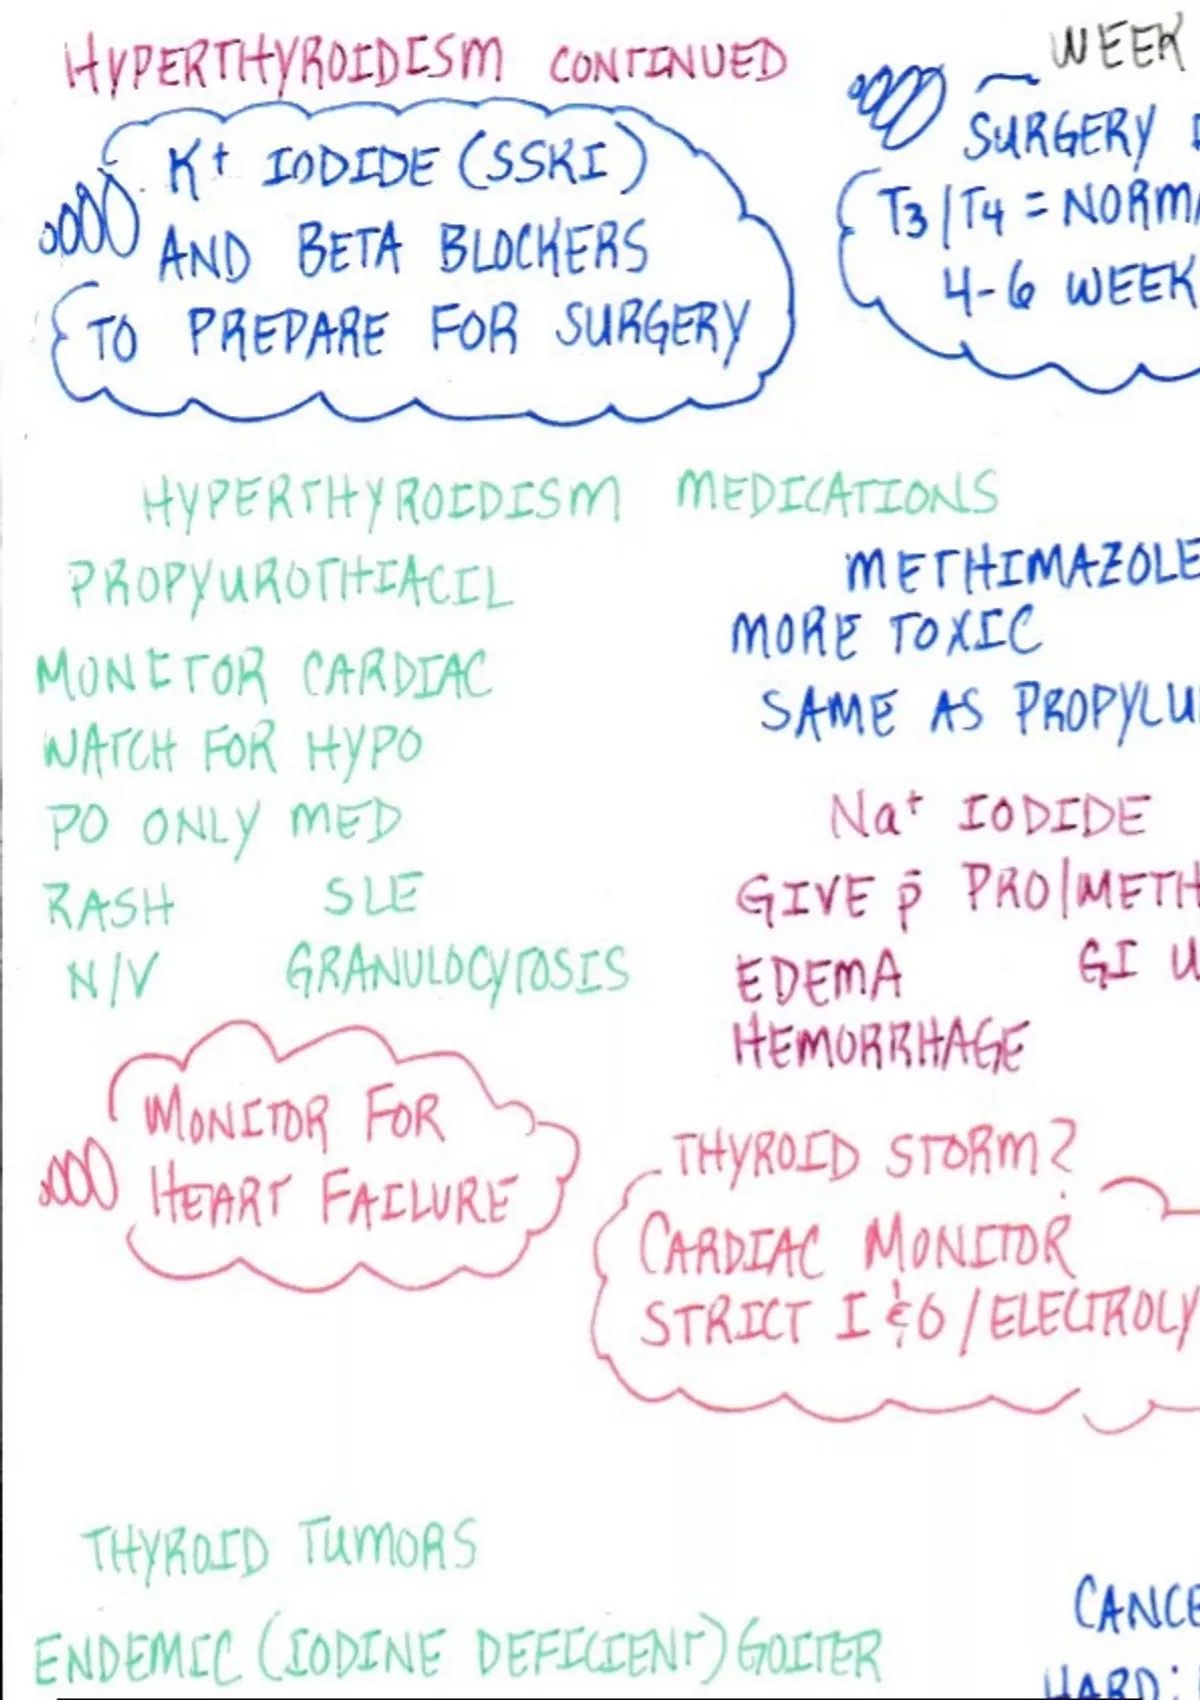 HYPERTHYROIDISM CONTINUED
WEEK
K+ IODIDE (SSKI)
AND BETA BLOCKERS
TO PREPARE FOR SURGERY
SURGERY
T3/T4 = NORMA
4-6 WEEK
HYPERTHYROIDISM MEDICATIONS
PROPYUROTHIACIL
MONITOR CARDIAC
WATCH FOR HYPO
PO ONLY MED
RASH SLE
N/V GRANULOCYTOSIS
METHIMAZOLE
MORE TOXIC
SAME AS PROPYLU
Na+ IODIDE
GIVE p̄ PRO/METH
EDEMA GI U
HEMORRHAGE
MONITOR FOR
HEART FAILURE
THYROID STORM?
CARDIAC MONITOR
STRICT I & O / ELECTROLY
THYROID TUMORS
ENDEMIC (IODINE DEFICIENT) GOITER
CANCE
HARD: